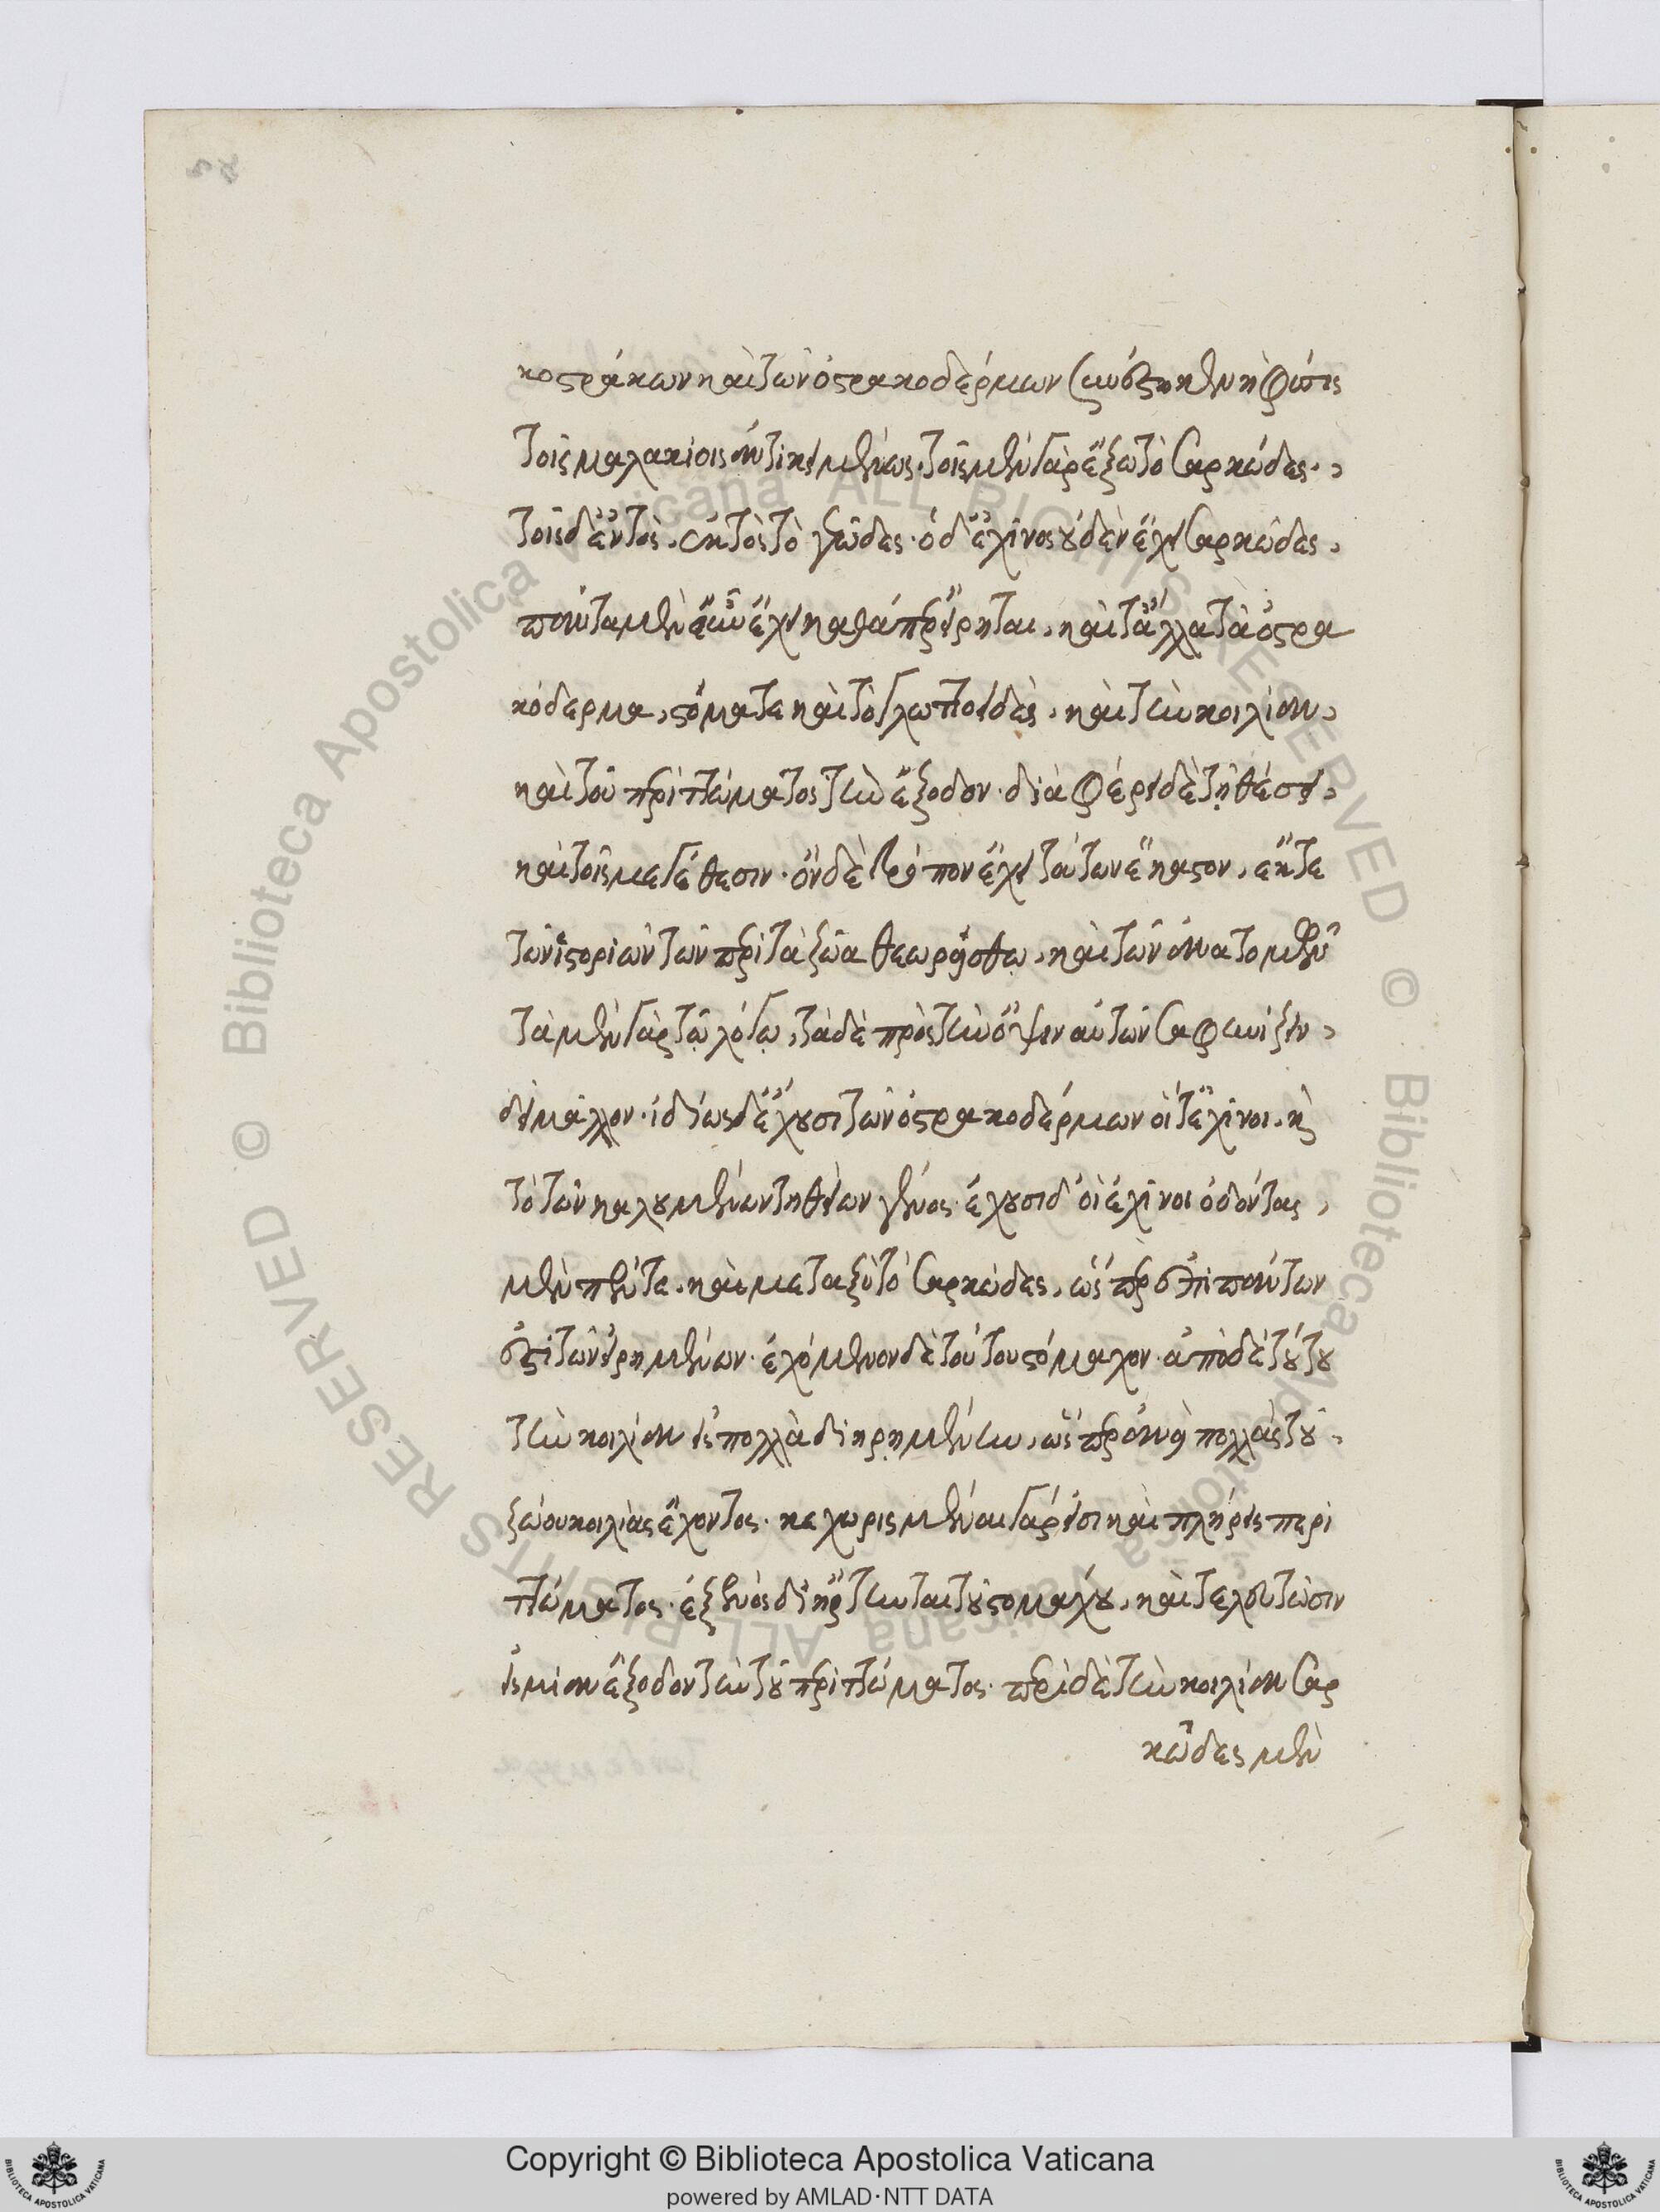 κοστράκων καὶ τῶν ὀστρακοδέρμων συνέστηκεν ἡ φύσις
τοῖς μαλακίοις ἀντικειμένως. τοῖς μὲν γὰρ ἔξω τὸ σαρκῶδες.
τοῖς δ' ἐντὸς. ἐκτὸς τὸ γεῶδες. ὁ δ' ἐχῖνος οὐδὲν ἔχει σαρκῶδες,
πάντα μὲν οὖν ἔχει καθάπερ εἴρηται, καὶ τἄλλα τὰ ὀστρα
κόδερμα, στόμα τε καὶ τὸ γλωττοειδὲς, καὶ τὴν κοιλίαν,
καὶ τοῦ περιττώματος τὴν ἔξοδον. διαφέρει δὲ τῇ θέσει,
καὶ τοῖς μεγέθεσιν. ὃν δὲ τρόπον ἔχει τούτων ἕκαστον, ἔκ τε
τῶν ἱστοριῶν τῶν περὶ τὰ ζῷα θεωρείσθω, καὶ τῶν ἀνατομῶν
τὰ μὲν γὰρ τῷ λόγῳ, τὰ δὲ πρὸς τὴν ὄψιν αὐτῶν σαφηνίζειν,
δεῖ μᾶλλον. ἰδίως δ' ἔχουσι τῶν ὀστρακοδέρμων οἵ τ' ἐχῖνοι, καὶ
τὸ τῶν καλουμένων τηθύων γένος. ἔχουσι δ' οἱ ἐχῖνοι ὀδόντας,
μὲν πέντε, καὶ μεταξὺ τὸ σαρκῶδες, ὥσπερ ἐπὶ πάντων
ἐστὶ τῶν εἰρημένων. ἐχόμενον δὲ τούτου στόμαχον. ἀπὸ δὲ τούτου
τὴν κοιλίαν εἰς πολλὰ διῃρημένην, ὡσπερανεὶ πολλὰς τοῦ
ζῴου κοιλίας ἔχοντος. κεχωρισμέναι γάρ εἰσι καὶ πλήρεις περι
ττώματος. ἐξ ἑνὸς δ' ἤρτηνται τοῦ στομάχου, καὶ τελευτῶσιν
εἰς μίαν ἔξοδον τὴν τοῦ περιττώματος. περὶ δὲ τὴν κοιλίαν σαρ
κῶδες μὲν
Copyright © Biblioteca Apostolica Vaticana
powered by AMLAD·NTT DATA